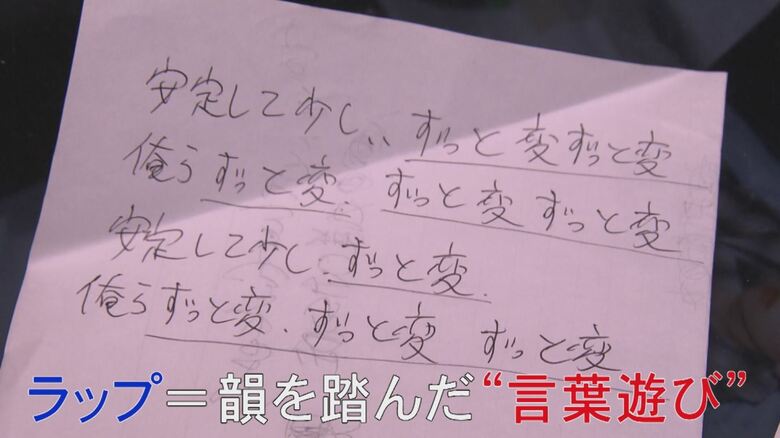 安定して少し、、ずっと変ずっと変
俺らずっと変、ずっと変ずっと変
安定して少し、ずっと変、
俺らずっと変、ずっと変 ずっと変
ラップ=韻を踏んだ“言葉遊び”